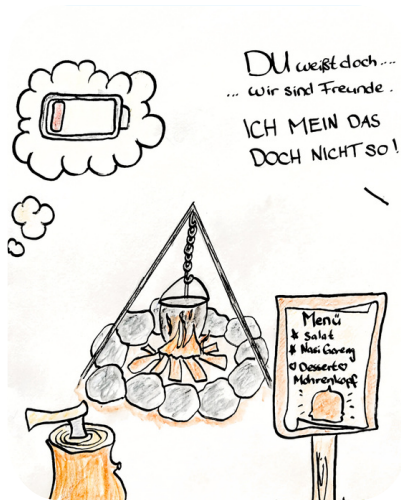 DU weißt doch....
... wir sind Freunde.
ICH MEIN DAS
DOCH NICHT SO!
Menü
* Salat
* Nasi Goreng
♡Dessert♡
Mohrenkopf